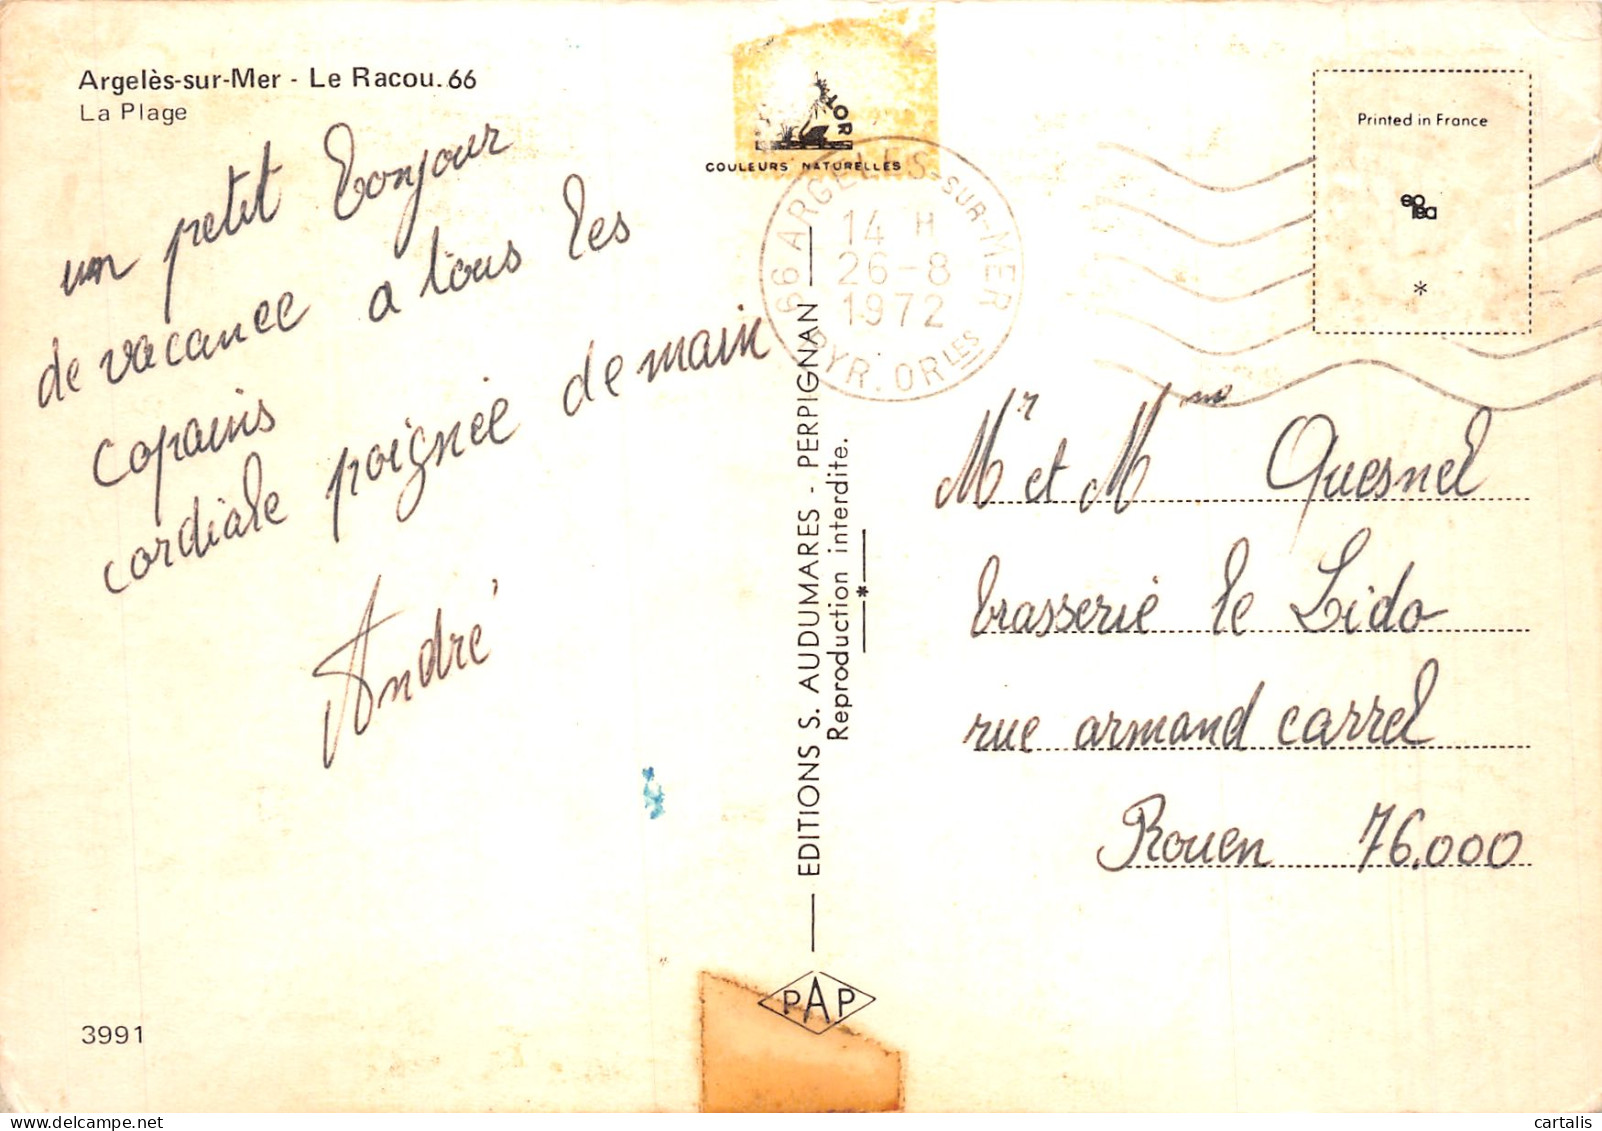 Argelès-sur-Mer - Le Racou. 66
La Plage
un petit bonjour
de vacance a tous les
copains
cordiale poignée de main
André
3991
TOR
COULEURS NATURELLES
66 ARGELES-SUR-MER
14 H
26-8
1972
PYR. ORLES
EDITIONS S. AUDUMARES - PERPIGNAN
Reproduction interdite.
*
PAP
Printed in France
*
Mr et Mme Quesnel
brasserie le Lido
rue armand carrel
Rouen 76.000
cartalis